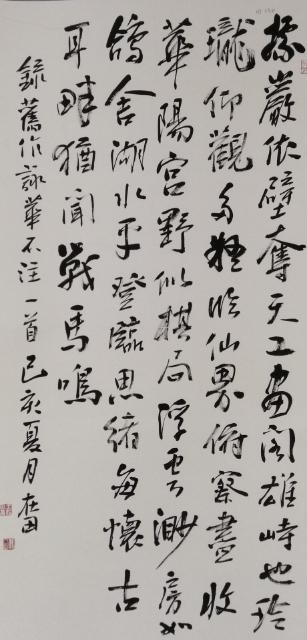 據巖依壁奪天工畫閣雄峙也玲
瓏仰觀疑臨仙界俯察盡收
華陽宮野似棋局浮雲渺房如
鴿舍湖水平登臨思緒每懷古
耳畔猶聞戰馬鳴
錄舊作詠華不注一首己亥夏月在田